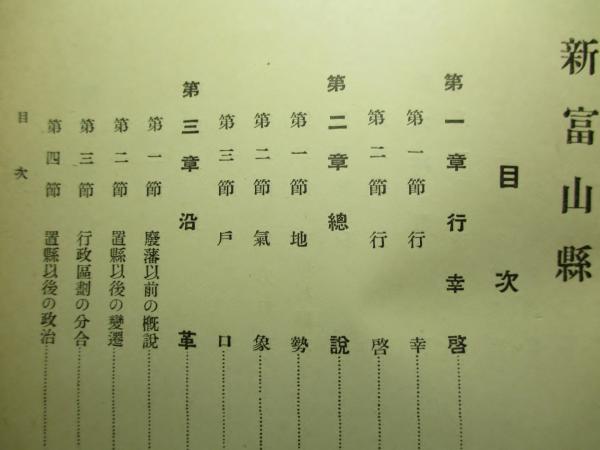 新富山縣
目次
第一章 行幸啓
第一節 行幸
第二節 行啓
第二章 總說
第一節 地勢
第二節 氣象
第三節 戶口
第三章 沿革
第一節 廢藩以前の槪說
第二節 置縣以後の變遷
第三節 行政區劃の分合
第四節 置縣以後の政治
目次